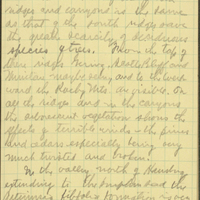 ridges and canyons is the same
as that of the south ridges save
the great scarcity of deciduous
species of trees. From the top of
these ridges
and to the west
ward the Rocky Mts. are visible. On
all the ridges and in the canyons
the arborescent vegetation shows the
effects of terrible winds - the pines
and cedars especially being very
much twisted and broken.
In the valley north of
extending to the and the